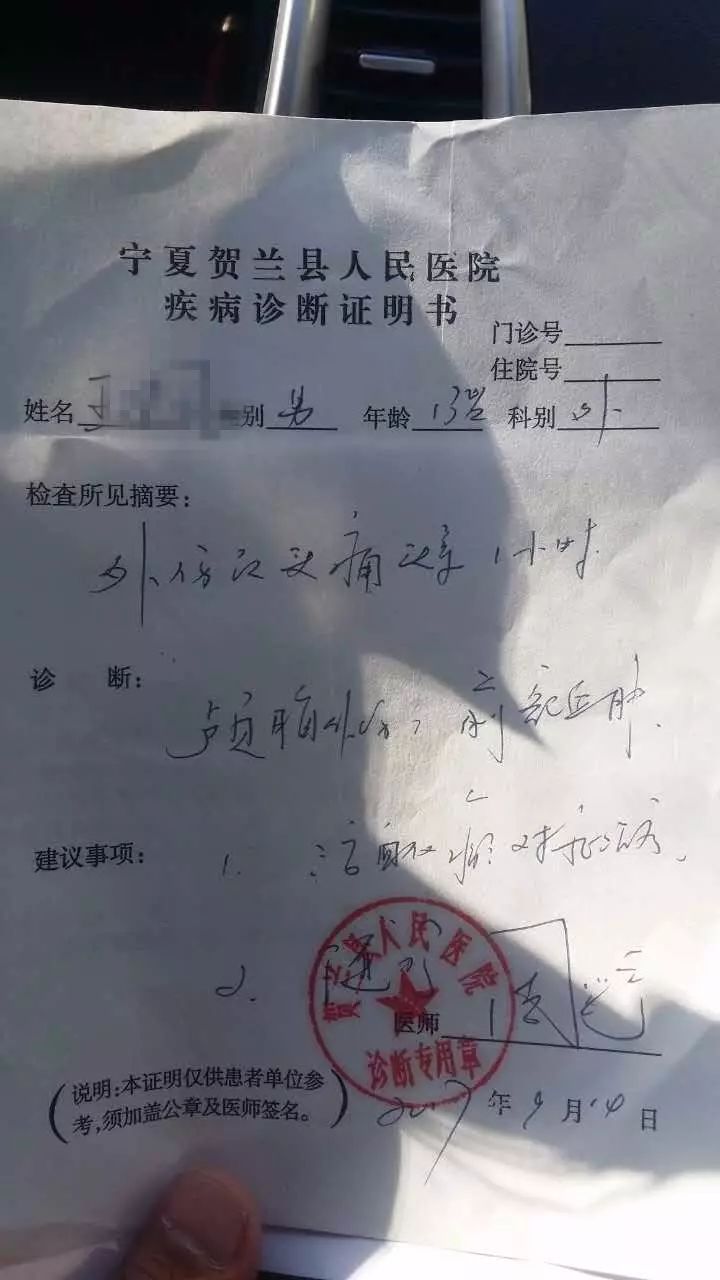 宁夏贺兰县人民医院
疾病诊断证明书
门诊号
住院号
姓名 王 别 男 年龄 13岁 科别 外
检查所见摘要：
外伤后头痛头晕1小时.
诊 断：
颅脑外伤， 血肿.
建议事项：
1. 对症治疗.
2. 随诊
贺兰县人民医院
诊断专用章
医师
(说明：本证明仅供患者单位参
考，须加盖公章及医师签名。)
2017年9月14日